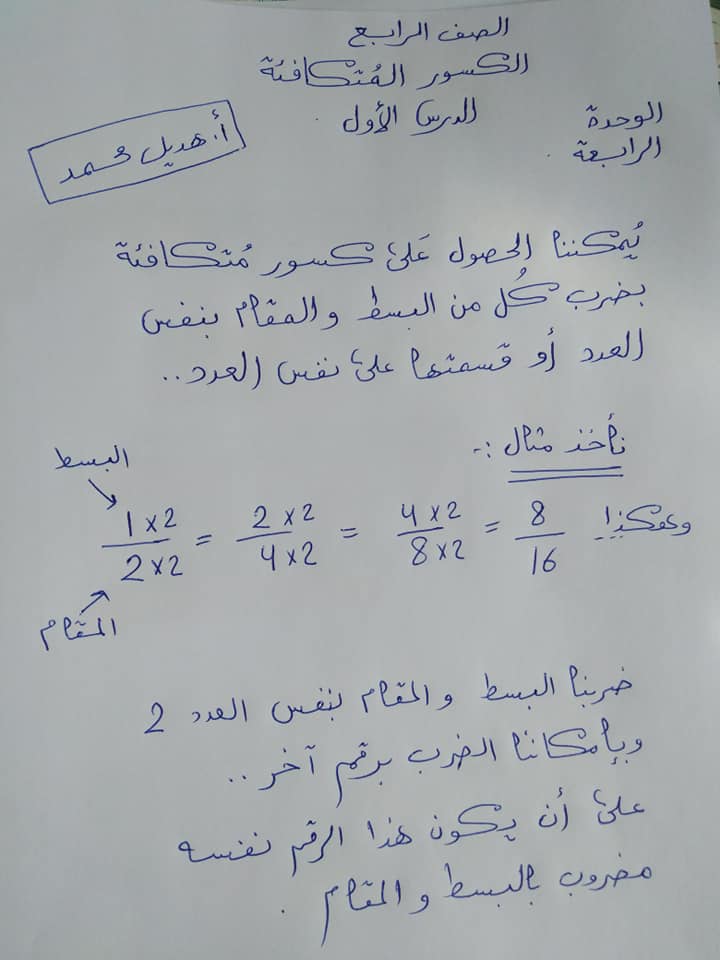 الصف الرابع
الكسور المُتكافئة
الدرس الأول
الوحدة
الرابعة
أ. هديل محمد
يُمكننا الحصول عَلى كسور مُتكافئة
بضرب كُل من البسط والمقام بنفس
العدد أو قسمتها على نفس العدد..
نأخذ مثال :-
البسط
1×2/2×2 = 2×2/4×2 = 4×2/8×2 = 8/16 وهكذا
المقام
ضربنا البسط والمقام بنفس العدد 2
وبإمكاننا الضرب برقم آخر..
على أن يكون هذا الرقم نفسه
مضروب بالبسط والمقام.